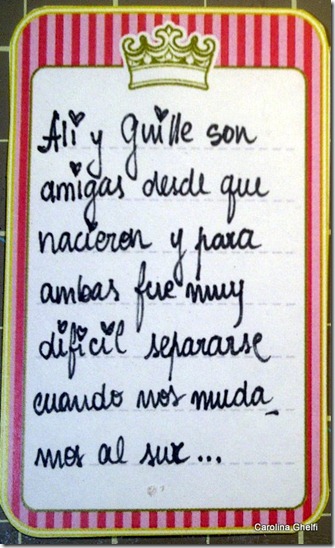 Ali y Guille son
amigas desde que
nacieron y para
ambas fue muy
dificil separarse
cuando nos muda_
mos al sur...
Carolina Ghelfi